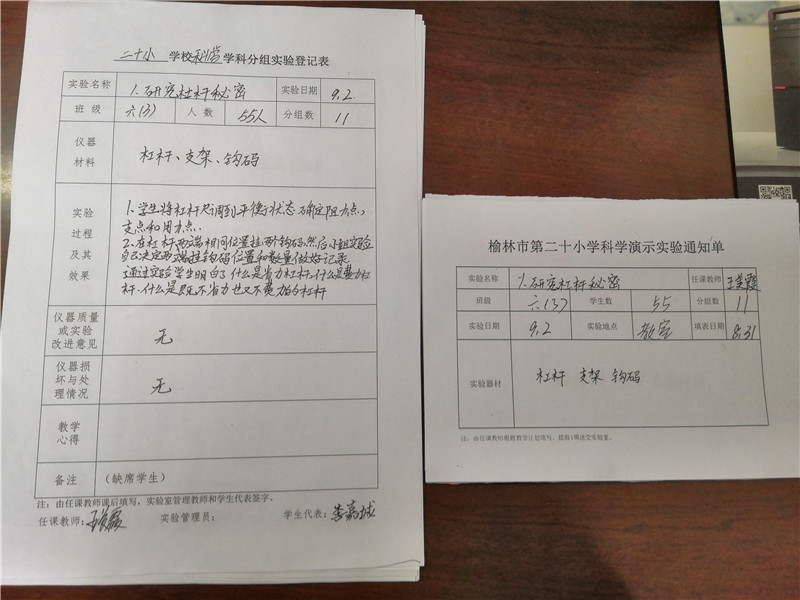 二十小 学校科学学科分组实验登记表
实验名称 1.研究杠杆秘密 实验日期 9.2.
班 级 六(3) 人 数 55人 分组数 11
仪器
材料
杠杆、支架、钩码
实验
过程
及其
效果
1.学生将杠杆尺调到平衡状态确定阻力点,
支点和用力点.
2.在杠杆两端相同位置挂两个钩码,然后小组实验
自己决定两端挂钩码位置和数量做好记录
通过实验学生明白了什么是省力杠杆,什么是费力杠
杆.什么是既不省力也又不费力的杠杆
仪器质量
或实验
改进意见
无
仪器损
坏与处
理情况
无
教学
心得
备注 (缺席学生)
注:由任课教师课后填写,实验室管理教师和学生代表签字。
任课教师: 实验管理员: 学生代表:
榆林市第二十小学科学演示实验通知单
实验名称 1.研究杠杆秘密 任课教师
班级 六(3) 学生数 55 分组数 11
实验日期 9.2 实验地点 教室 填表日期 8.31
实验器材 杠杆 支架 钩码
注:由任课教师根据教学计划填写,提前1周送交实验室。